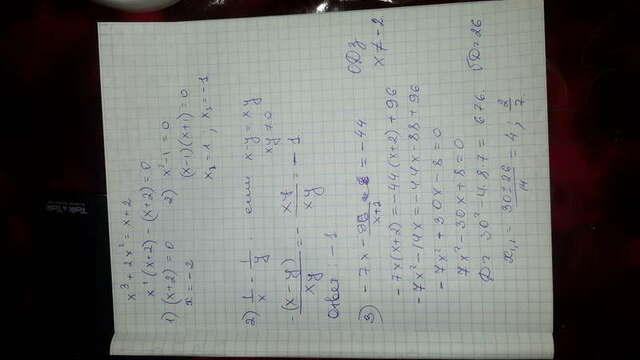 x³ + 2x² = x + 2
x²(x+2) - (x+2) = 0
1) (x+2) = 0   2) x² - 1 = 0
x = -2   (x-1)(x+1) = 0
x₂ = 1, x₃ = -1
2) 1/x - 1/y, если x - y = xy
xy ≠ 0
-(x-y)/xy = - xy/xy = -1
Ответ -1
3) -7x - 96/(x+2) = -44   ОДЗ
x ≠ -2
-7x(x+2) = -44(x+2) + 96
-7x² - 14x = -44x - 88 + 96
-7x² + 30x - 8 = 0
7x² - 30x + 8 = 0
D = 30² - 4·8·7 = 676.   √D = 26
x₁,₂ = (30 ± 26)/14 = 4; 2/7.